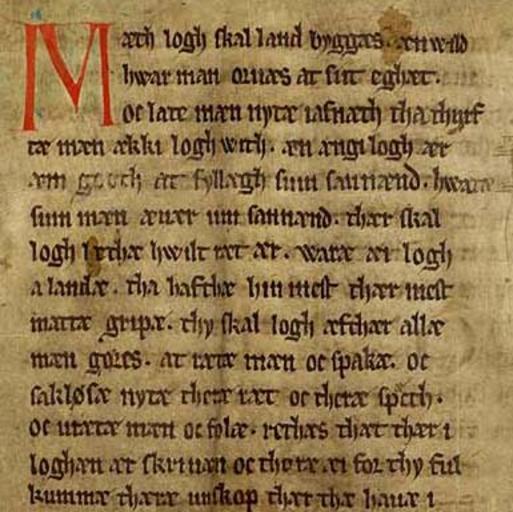 Mæth logh skal land byggæs. æn wild
hwar man oruæs at sit eghæt.
oc late mæn nytæ iafnæth tha thyrf
tæ mæn ækki logh with. æn ængi logh ær
æm gooth at fyllægh sum sannænd. hwaræ
sum mæn æuær um sannænd. thær skal
logh lethæ hwilt ræt ær. waræ æi logh
a landæ. tha hafthæ hin mest thær mest
mattæ gripæ. thy skal logh æfthær allæ
mæn gøres. at rætæ mæn oc spakæ. oc
sakløsæ nytæ theræ ræt oc theræ spæch.
oc urætæ mæn oc folæ. rethæs thæt thær i
loghæn ær skriuæn oc thoræ æi for thy ful
kummæ theræ unskop thær thæ hauæ i